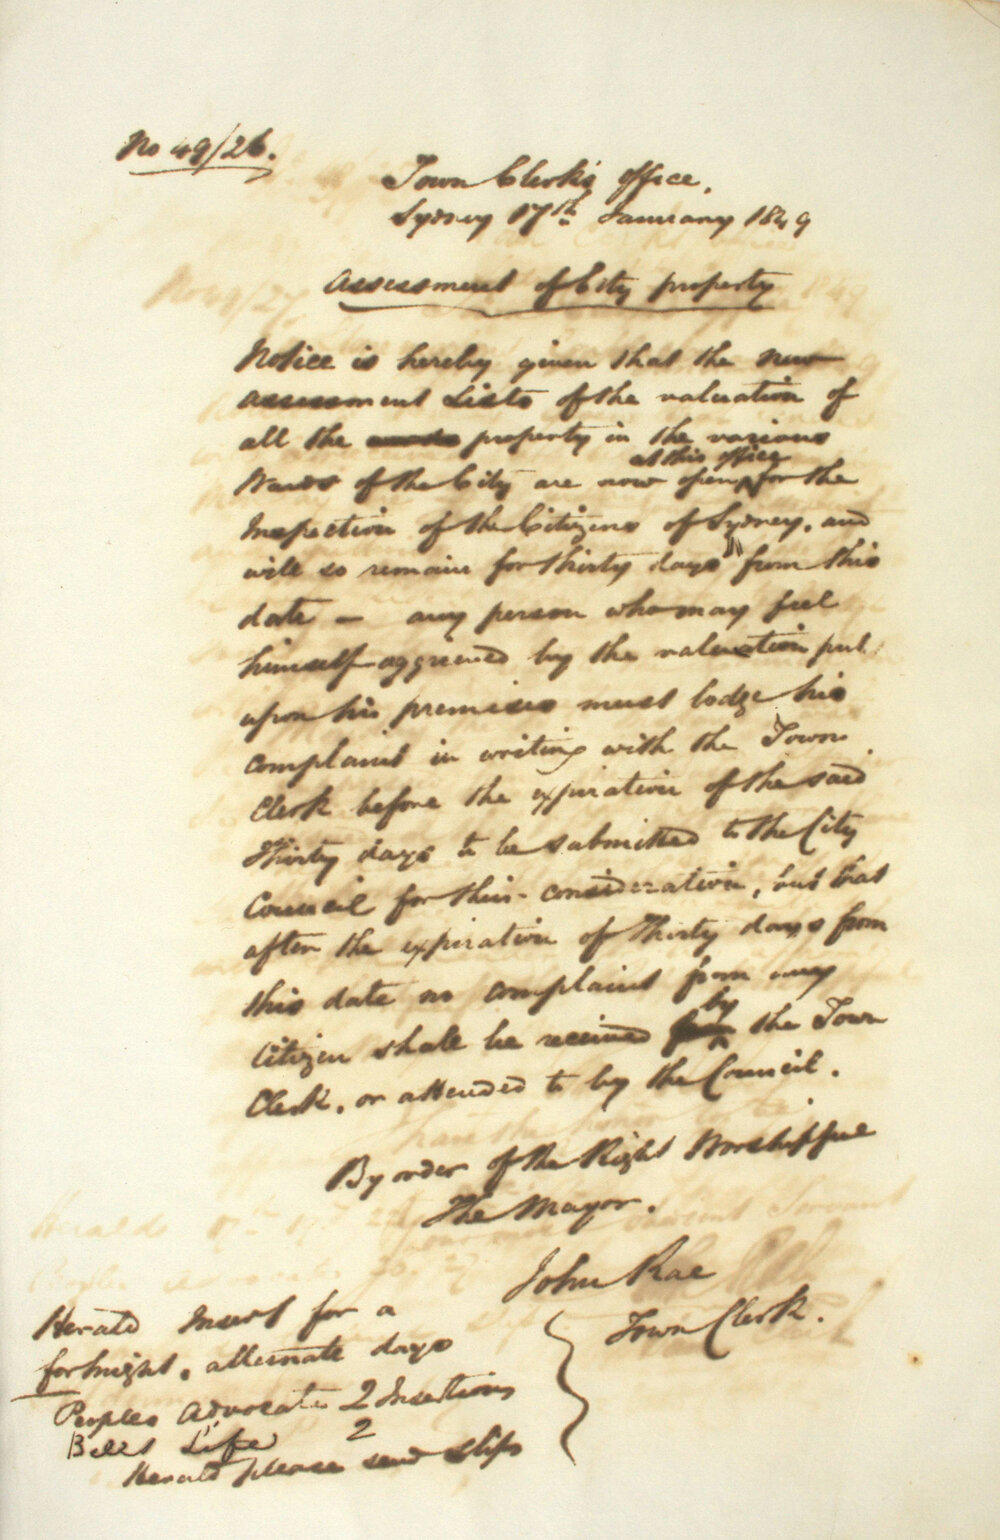 No 49/26.
Town Clerk's Office,
Sydney 17th January 1849
Assessment of City property
Notice is hereby given that the new
assessment Lists of the valuation of
all the property in the various
at this office
Wards of the City are now open, for the
Inspection of the Citizens of Sydney, and
will so remain for thirty days from this
date — any person who may feel
himself aggrieved by the valuation put
upon his premises must lodge his
complaint in writing with the Town
Clerk before the expiration of the said
Thirty days to be submitted to the City
Council for their consideration, but that
after the expiration of Thirty days from
this date no complaint from any
by
Citizen shall be received the Town
Clerk, or attended to by the Council.
By order of the Right Worshipful
The Mayor.
John Rae
Town Clerk.
Herald Insert for a
fortnight, alternate days
Peoples Advocate 2 Insertions
Bells Life 2
Herald please send slips